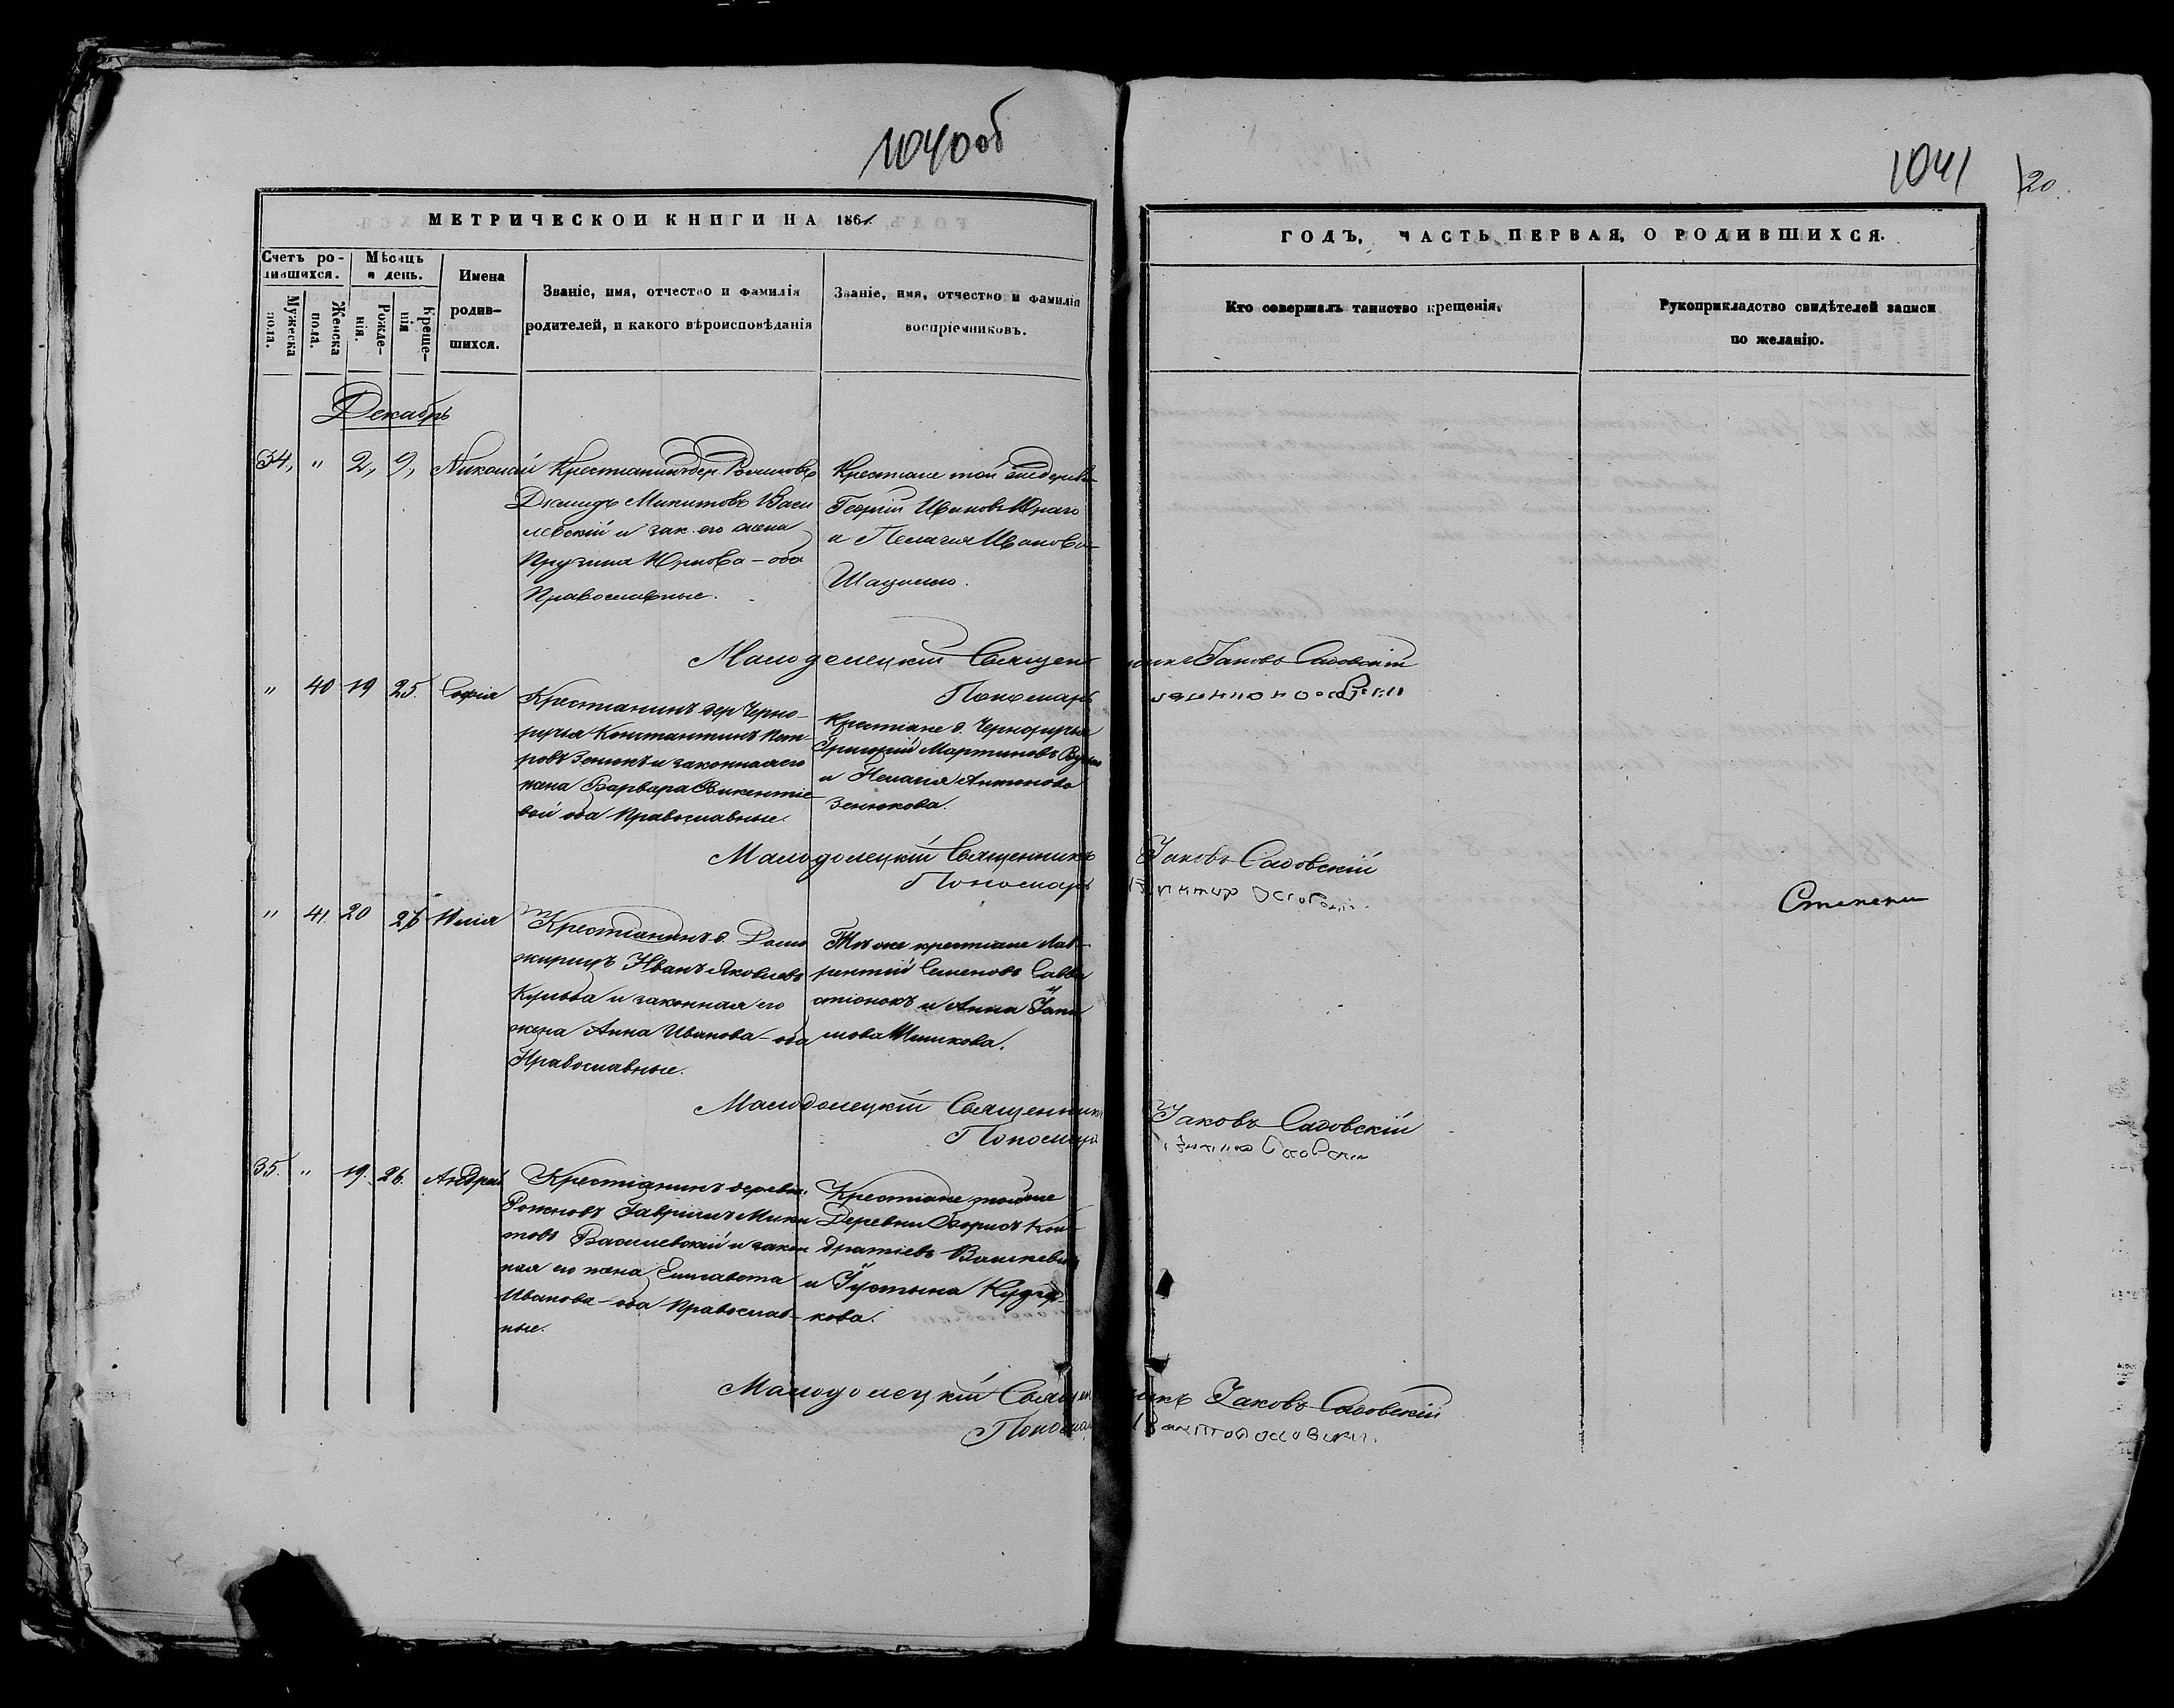 1040об
1041
120.
МЕТРИЧЕСКОЙ КНИГИ НА 1861.
ГОДЪ, ЧАСТЬ ПЕРВАЯ, О РОДИВШИХСЯ.
Счетъ родившихся.
Мужеска пола.
Женска пола.
Мѣсяцъ и день.
Рожденія.
Крещенія
Имена родившихся.
Званіе, имя, отчество и фамилія
родителей, и какого вѣроисповѣданія
Званіе, имя, отчество и фамилія
воспріемниковъ.
Кто совершалъ таинство крещенія.
Рукоприкладство свидѣтелей записи
по желанію.
Декабрь
34, " 2, 9, Николай
Крестьянинъ дер.
Микитовъ Васи
левскій и зак. его жена
Юркова – оба
Православные.
Крестяне той же деревни
Георгій Ивановъ
и Пелагія Иванова
Малодолецкій Священникъ Іаковъ Садовскій
Пономарь
" 40 19 25. Софія
Крестіанинъ дер Черно-
ручья Константинъ Пет-
ровъ Зенюкъ и законная его
жена Варвара Викентіе
вой оба Православные.
Крестіане д. Черноручья
Григорій Мартиновъ
и Пелагія Антонова
Зенюкова.
Малодолецкій Священникъ Іаковъ Садовскій
Пономарь
" 41. 20 26 Юлія
Крестіанинъ д. Дом
жирицъ Иванъ Яковлевъ
Кульба и законная его
жена Анна Иванова – оба
Православные.
Тѣ же крестіане Лав-
рентій Семеновъ Савви
стіонокъ и Анна
мова Шишкова.
Малодолецкій Священникъ Іаковъ Садовскій
Пономарь
35. " 19. 26. Андрей
Крестіанинъ деревни
Рожновъ Гавріилъ Мики
товъ Василевскій и закон
ная его жена Елисавета
Иванова – оба Православ-
ные.
Крестіане той же
Деревни Борисъ Кон-
дратіевъ Вашкевичъ
и Іустына
кова.
Малодолецкій Священникъ Іаковъ Садовскій
Пономарь